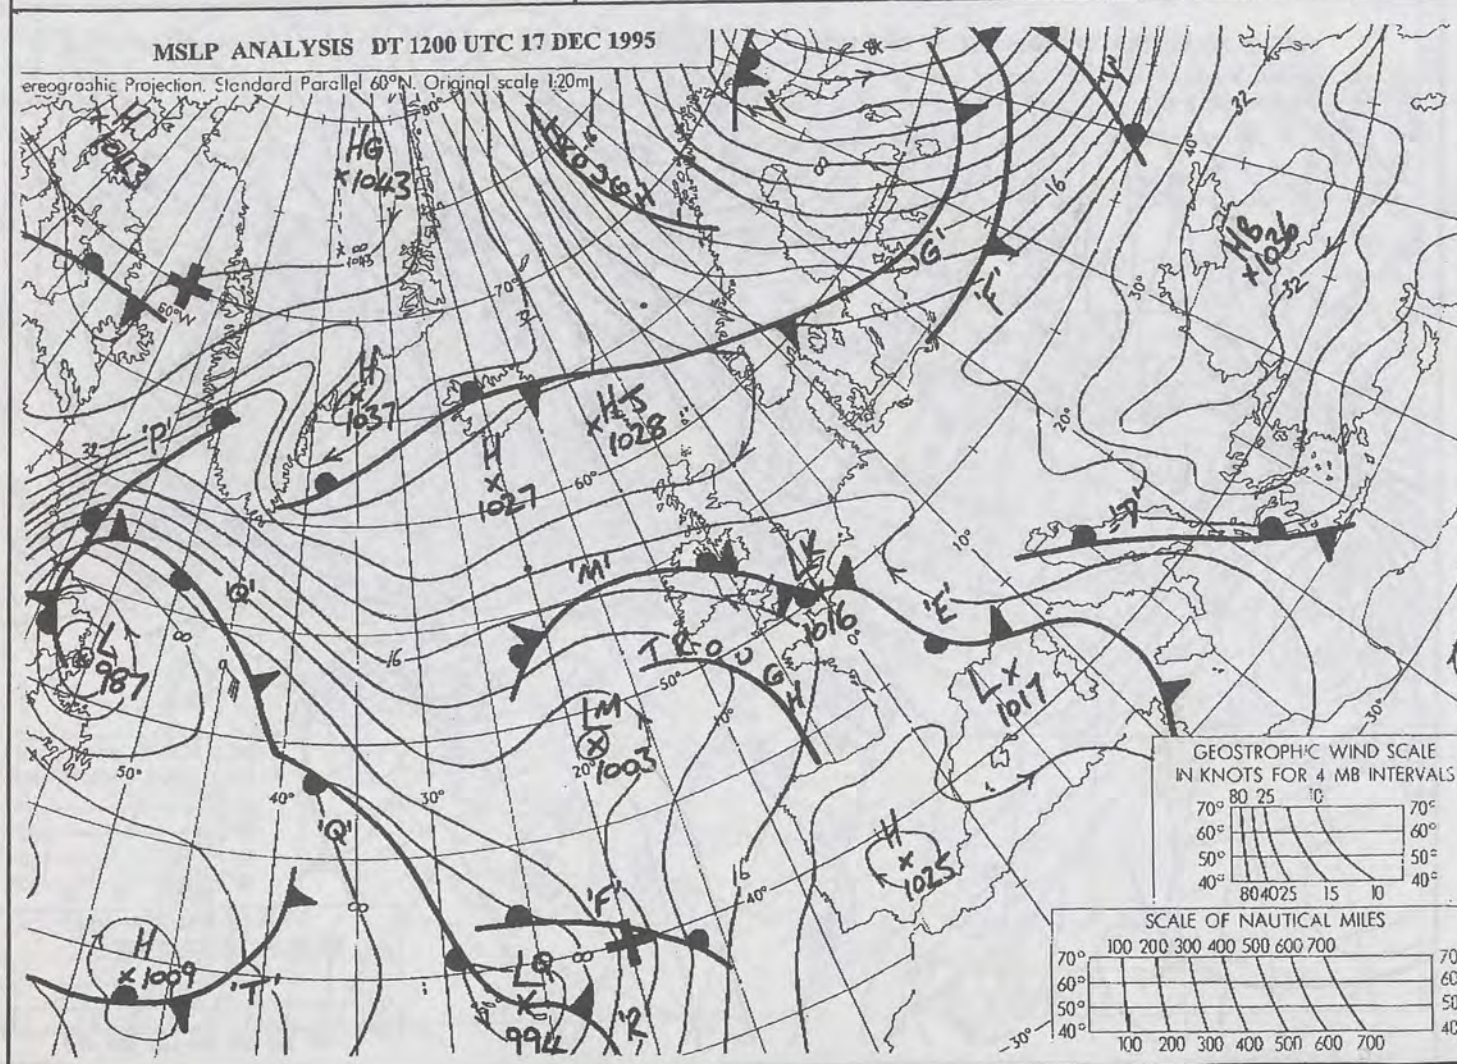 MSLP ANALYSIS DT 1200 UTC 17 DEC 1995
ereographic Projection. Standard Parallel 60°N. Original scale 1:20m
80°
H
1043
HG
1043
1043
TROUGH
'G'
'F'
16
32
40°
HB
1036
32
30°
70°
60°W
H
1037
HJ
1028
H
1027
60°
20°
32
'P'
'Q'
'M'
LK
1016
10°
'E'
'D'
0°
L
987
16
TROUGH
50°
10°
LM
1003
20°
L
1017
30°
50°
40°
30°
'Q'
H
1025
16
40°
'F'
H
1009
'T'
LQ
994
'R
30°
GEOSTROPHIC WIND SCALE
IN KNOTS FOR 4 MB INTERVALS
80 25 10
70° 70°
60° 60°
50° 50°
40° 40°
80 40 25 15 10
SCALE OF NAUTICAL MILES
100 200 300 400 500 600 700
70° 70
60° 60
50° 50
40° 40
100 200 300 400 500 600 700